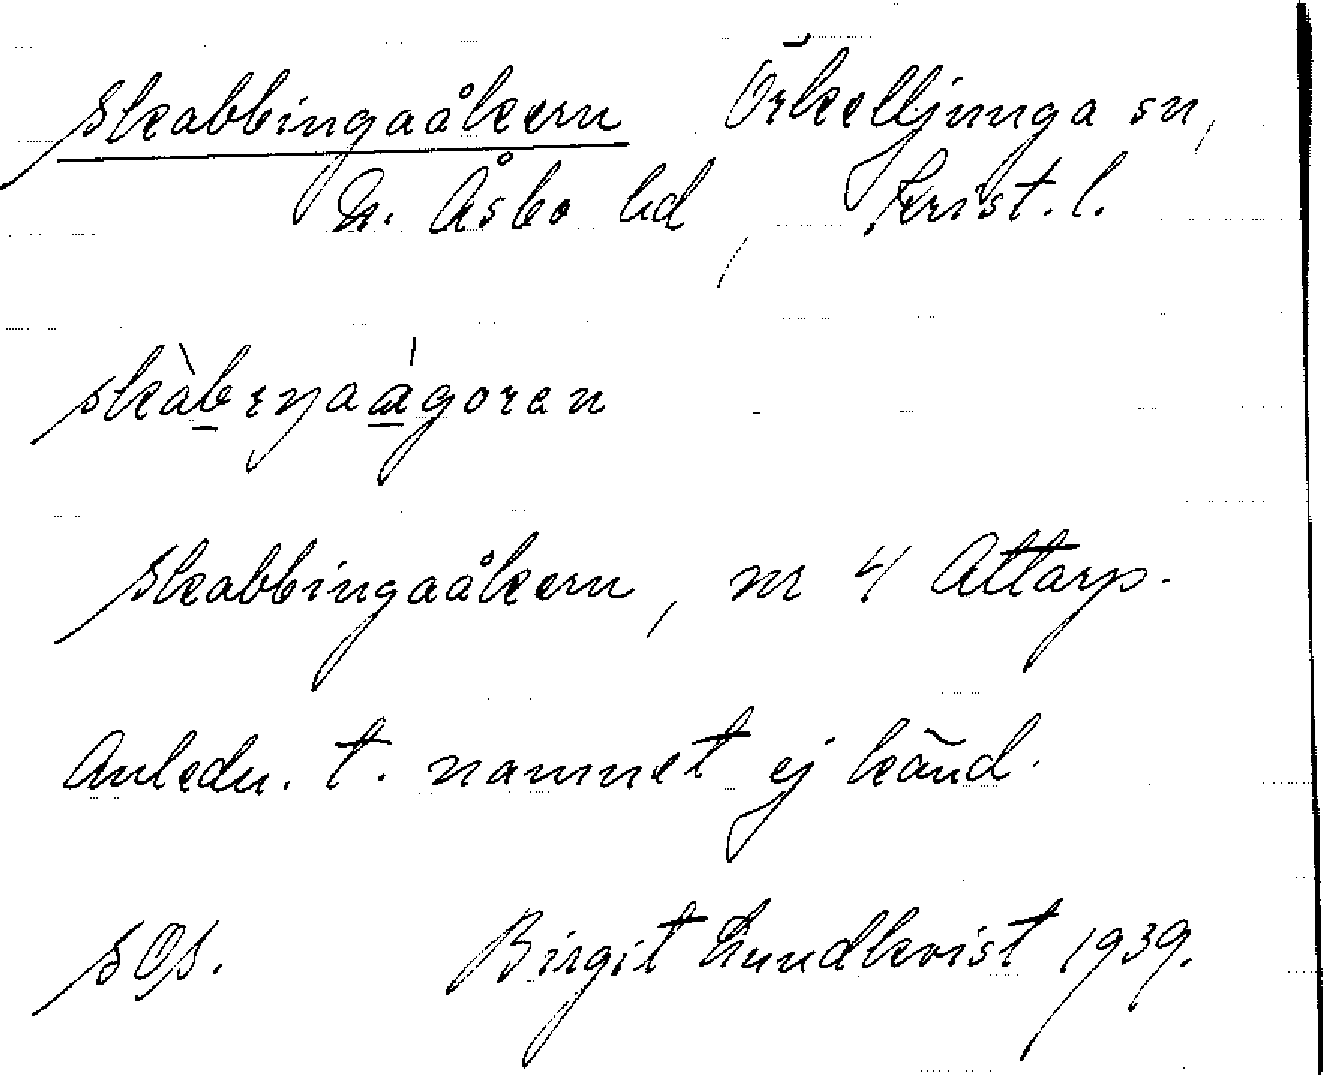 Skabbingaåkern Örkelljunga sn,
N. Åsbo hd, Krist. l.
skàbeŋaágoren
Skabbingaåkern, nr 4 Attarp.
Anledn. t. namnet ej känd.
sOs. Birgit Lundkvist 1939.